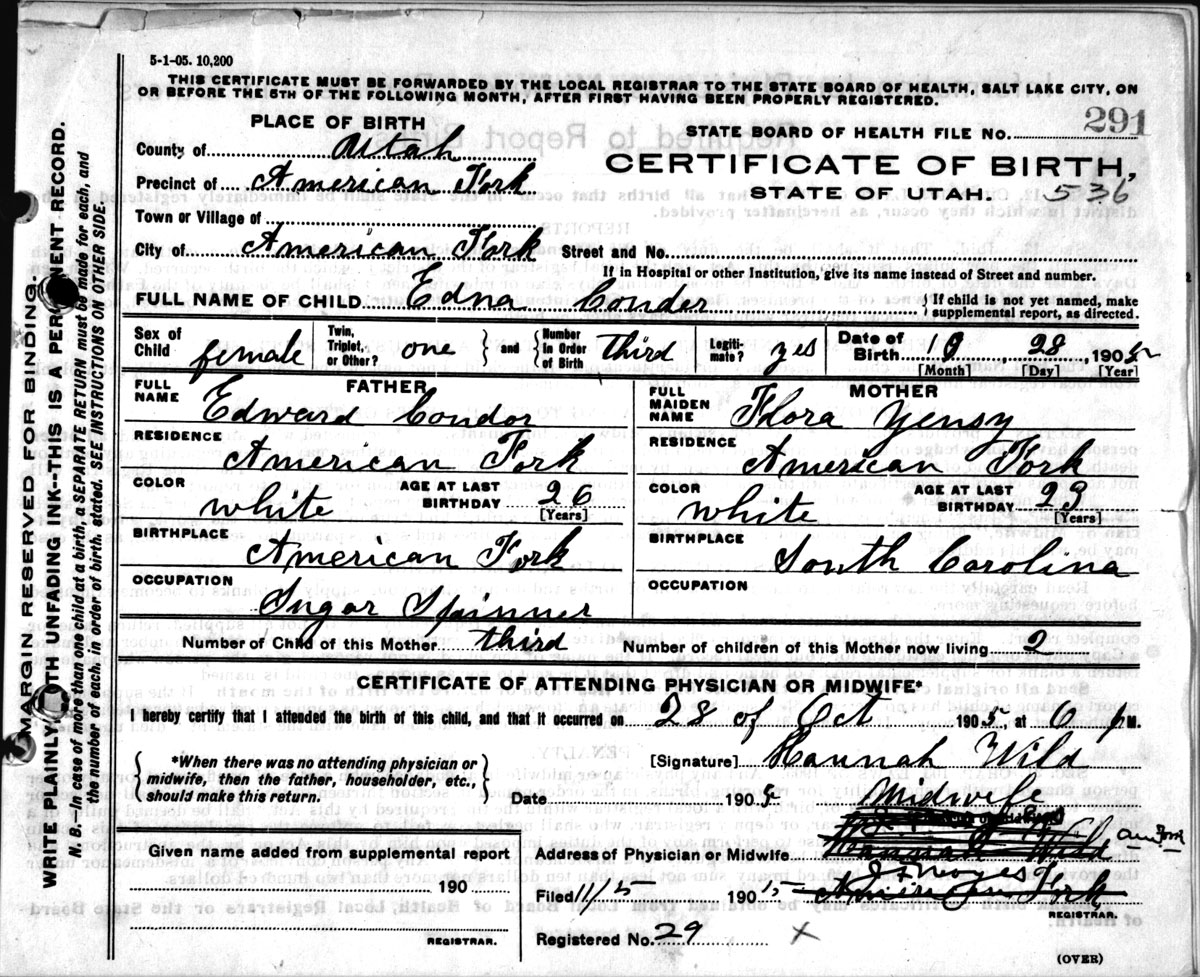 5-1-05. 10,200
THIS CERTIFICATE MUST BE FORWARDED BY THE LOCAL REGISTRAR TO THE STATE BOARD OF HEALTH, SALT LAKE CITY, ON
OR BEFORE THE 5TH OF THE FOLLOWING MONTH, AFTER FIRST HAVING BEEN PROPERLY REGISTERED.
PLACE OF BIRTH
STATE BOARD OF HEALTH FILE NO. 291
County of Utah
CERTIFICATE OF BIRTH,
Precinct of American Fork
STATE OF UTAH. 536
Town or Village of
City of American Fork Street and No.
If in Hospital or other Institution, give its name instead of Street and number.
FULL NAME OF CHILD Edna Conder { If child is not yet named, make supplemental report, as directed.
Sex of Child female Twin, Triplet, or Other? one } and { Number in Order of Birth third Legiti-mate? yes Date of Birth 10, 28, 1905
[Month] [Day] [Year]
FATHER
FULL NAME Edward Condor
RESIDENCE American Fork
COLOR white AGE AT LAST BIRTHDAY 26 [Years]
BIRTHPLACE American Fork
OCCUPATION Sugar Spinner
MOTHER
FULL MAIDEN NAME Flora Yensy
RESIDENCE American Fork
COLOR white AGE AT LAST BIRTHDAY 23 [Years]
BIRTHPLACE South Carolina
OCCUPATION
Number of Child of this Mother third Number of children of this Mother now living 2
CERTIFICATE OF ATTENDING PHYSICIAN OR MIDWIFE*
I hereby certify that I attended the birth of this child, and that it occurred on 28 of Oct 1905, at 6 P M.
{ *When there was no attending physician or midwife, then the father, householder, etc., should make this return. }
[Signature] Hannah Wild
Date 1905 Midwife
Given name added from supplemental report
190
REGISTRAR.
Address of Physician or Midwife Hannah Wild Am Fork
Filed 11/5 1905 American Fork
REGISTRAR.
Registered No. 29 X
(OVER)
MARGIN RESERVED FOR BINDING.
WRITE PLAINLY WITH UNFADING INK--THIS IS A PERMANENT RECORD.
N. B.--In case of more than one child at a birth, a SEPARATE RETURN must be made for each, and
the number of each, in order of birth, stated. SEE INSTRUCTIONS ON OTHER SIDE.